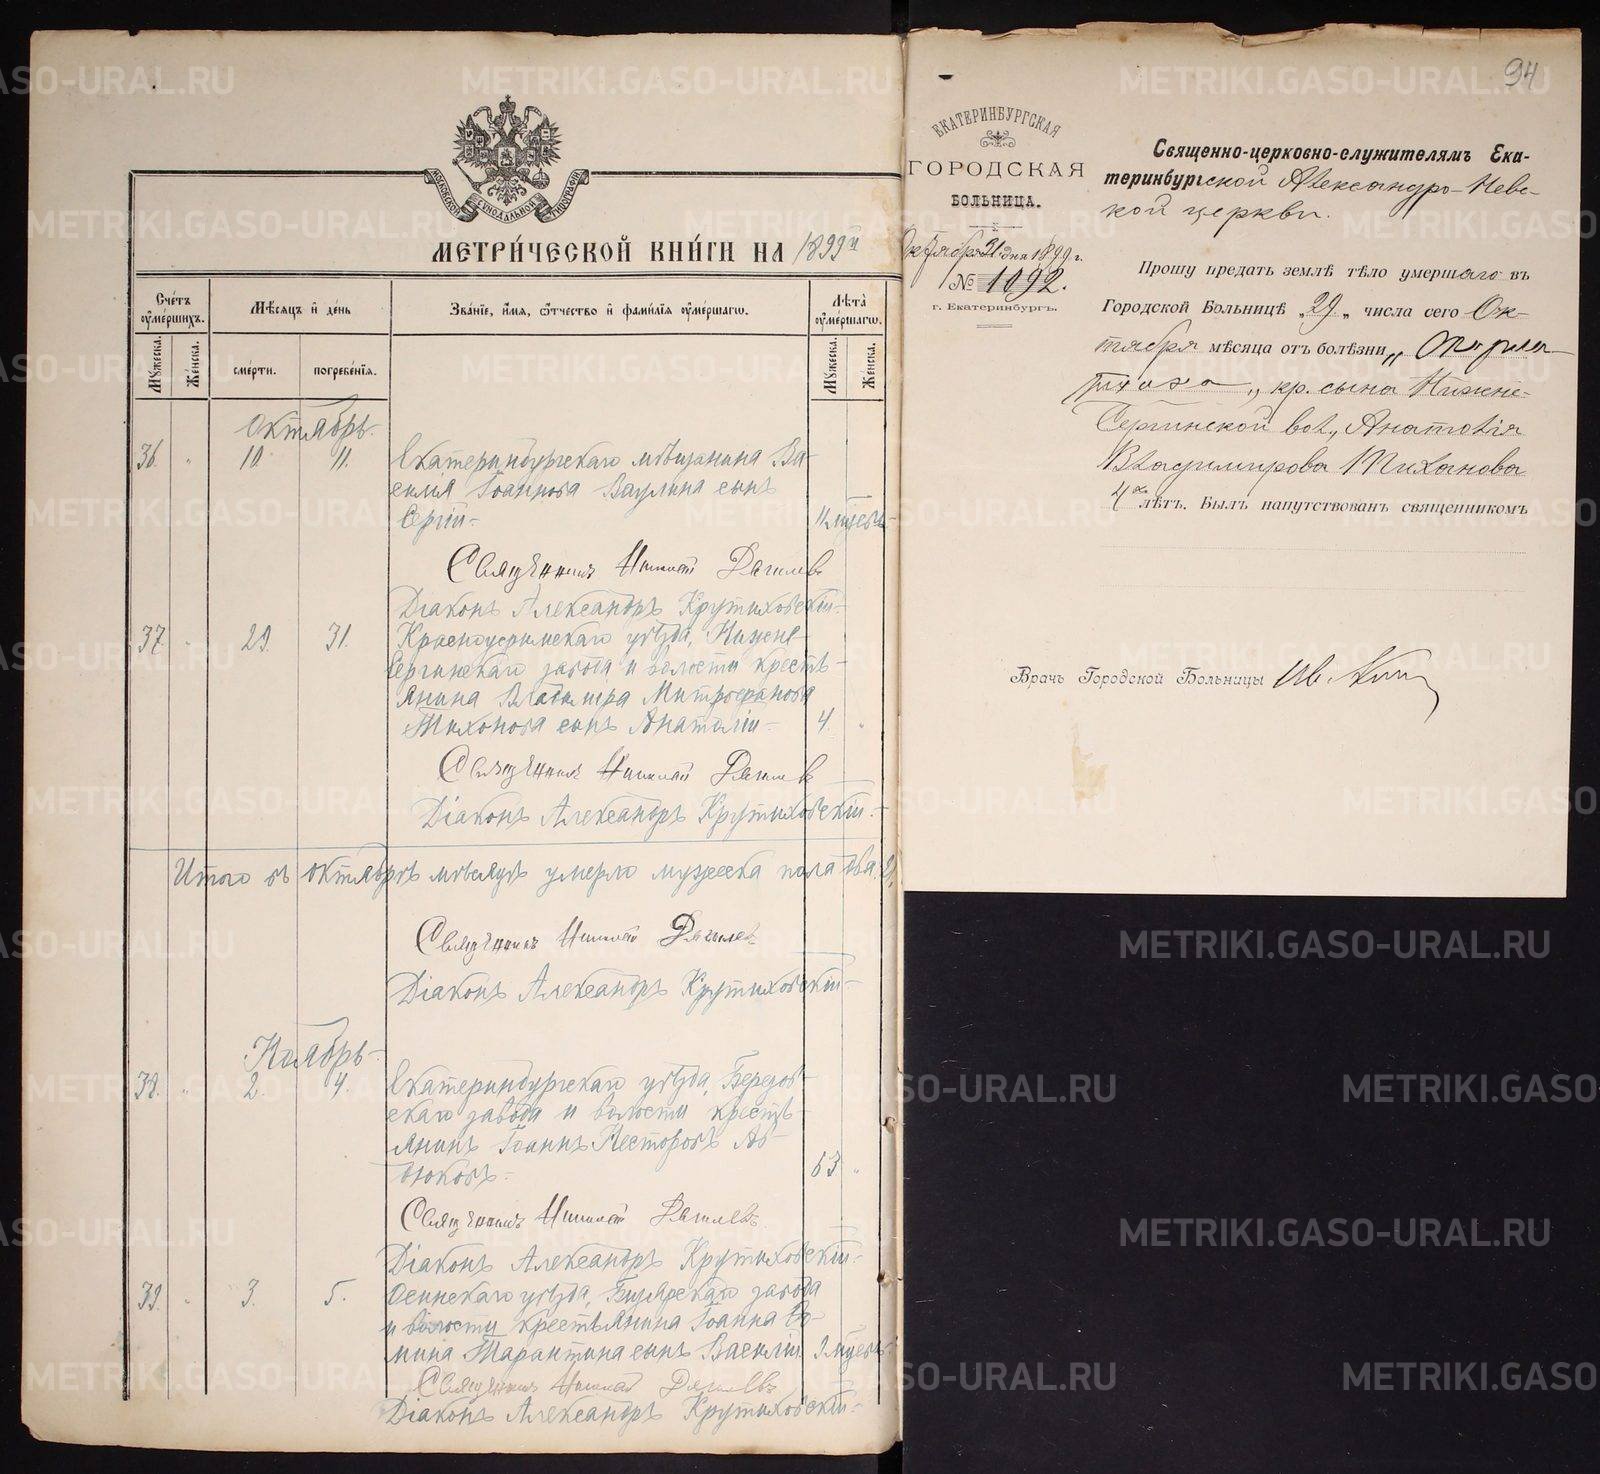 МЕТРИ́ЧЕСКОЙ КНИ́ГИ НА 1899й
МОСКОВСКОЙ СУНОДАЛЬНОЙ ТИПОГРАФІИ
Сче́тъ оу҆ме́ршихъ.
Мѣ́сяцъ и҆ де́нь
Зва́нїе, и҆́мя, ѻ҆́тчество и҆ фами́лїя оу҆ме́ршагѡ.
Лѣ́та оу҆ме́ршагѡ.
Мꙋ́жеска.
Же́нска.
сме́рти.
погребе́нїя.
Мꙋ́жеска.
Же́нска.
Октябрь.
36. " 10. 11. Екатеринбургскаго мѣщанина Ва-
силія Іоаннова Ваулина сынъ
Сергій- 11 мѣсяц.
Священникъ Николай
Діаконъ Александръ Крутиховскій-
37. " 29. 31. Красноуфимскаго уѣзда, Нижне-
Сергинскаго завода и волости кресть-
янина Владиміра Митрофанова
Тихонова сынъ Анатолій- 4. "
Священникъ Николай
Діаконъ Александръ Крутиховскій.-
Итого въ октябрѣ мѣсяцѣ умерло мужеска пола два. 2.
Священникъ Николай
Діаконъ Александръ Крутиховскій-
Ноябрь-
38. " 2. 4. Екатеринбургскаго уѣзда, Березов-
скаго завода и волости кресть-
янинъ Іоаннъ Несторовъ Ав-
дюковъ- 63 "
Священникъ Николай
Діаконъ Александръ Крутиховскій-
39. " 3. 5. Осинскаго уѣзда, Бизярскаго завода
и волости крестьянина Іоанна Ѳо-
мина Тарантина сынъ Василій. 9 мѣсяц.
Священникъ Николай
Діаконъ Александръ Крутиховскій-
94
ЕКАТЕРИНБУРГСКАЯ
ГОРОДСКАЯ
БОЛЬНИЦА.
Октября 31 дня 1899 г.
№ 1092.
г. Екатеринбургъ.
Священно-церковно-служителямъ Ека-
теринбургской Александро-Нев-
ской церкви.
Прошу предать землѣ тѣло умершаго въ
Городской Больницѣ „29„ числа сего Ок-
тября мѣсяца отъ болѣзни „
„ кр. сына Нижне-
Сергинской вол., Анатолія
Владимирова Тиханова
4хъ лѣтъ. Былъ напутствованъ священникомъ
Врачъ Городской Больницы Ив.
METRIKI.GASO-URAL.RU